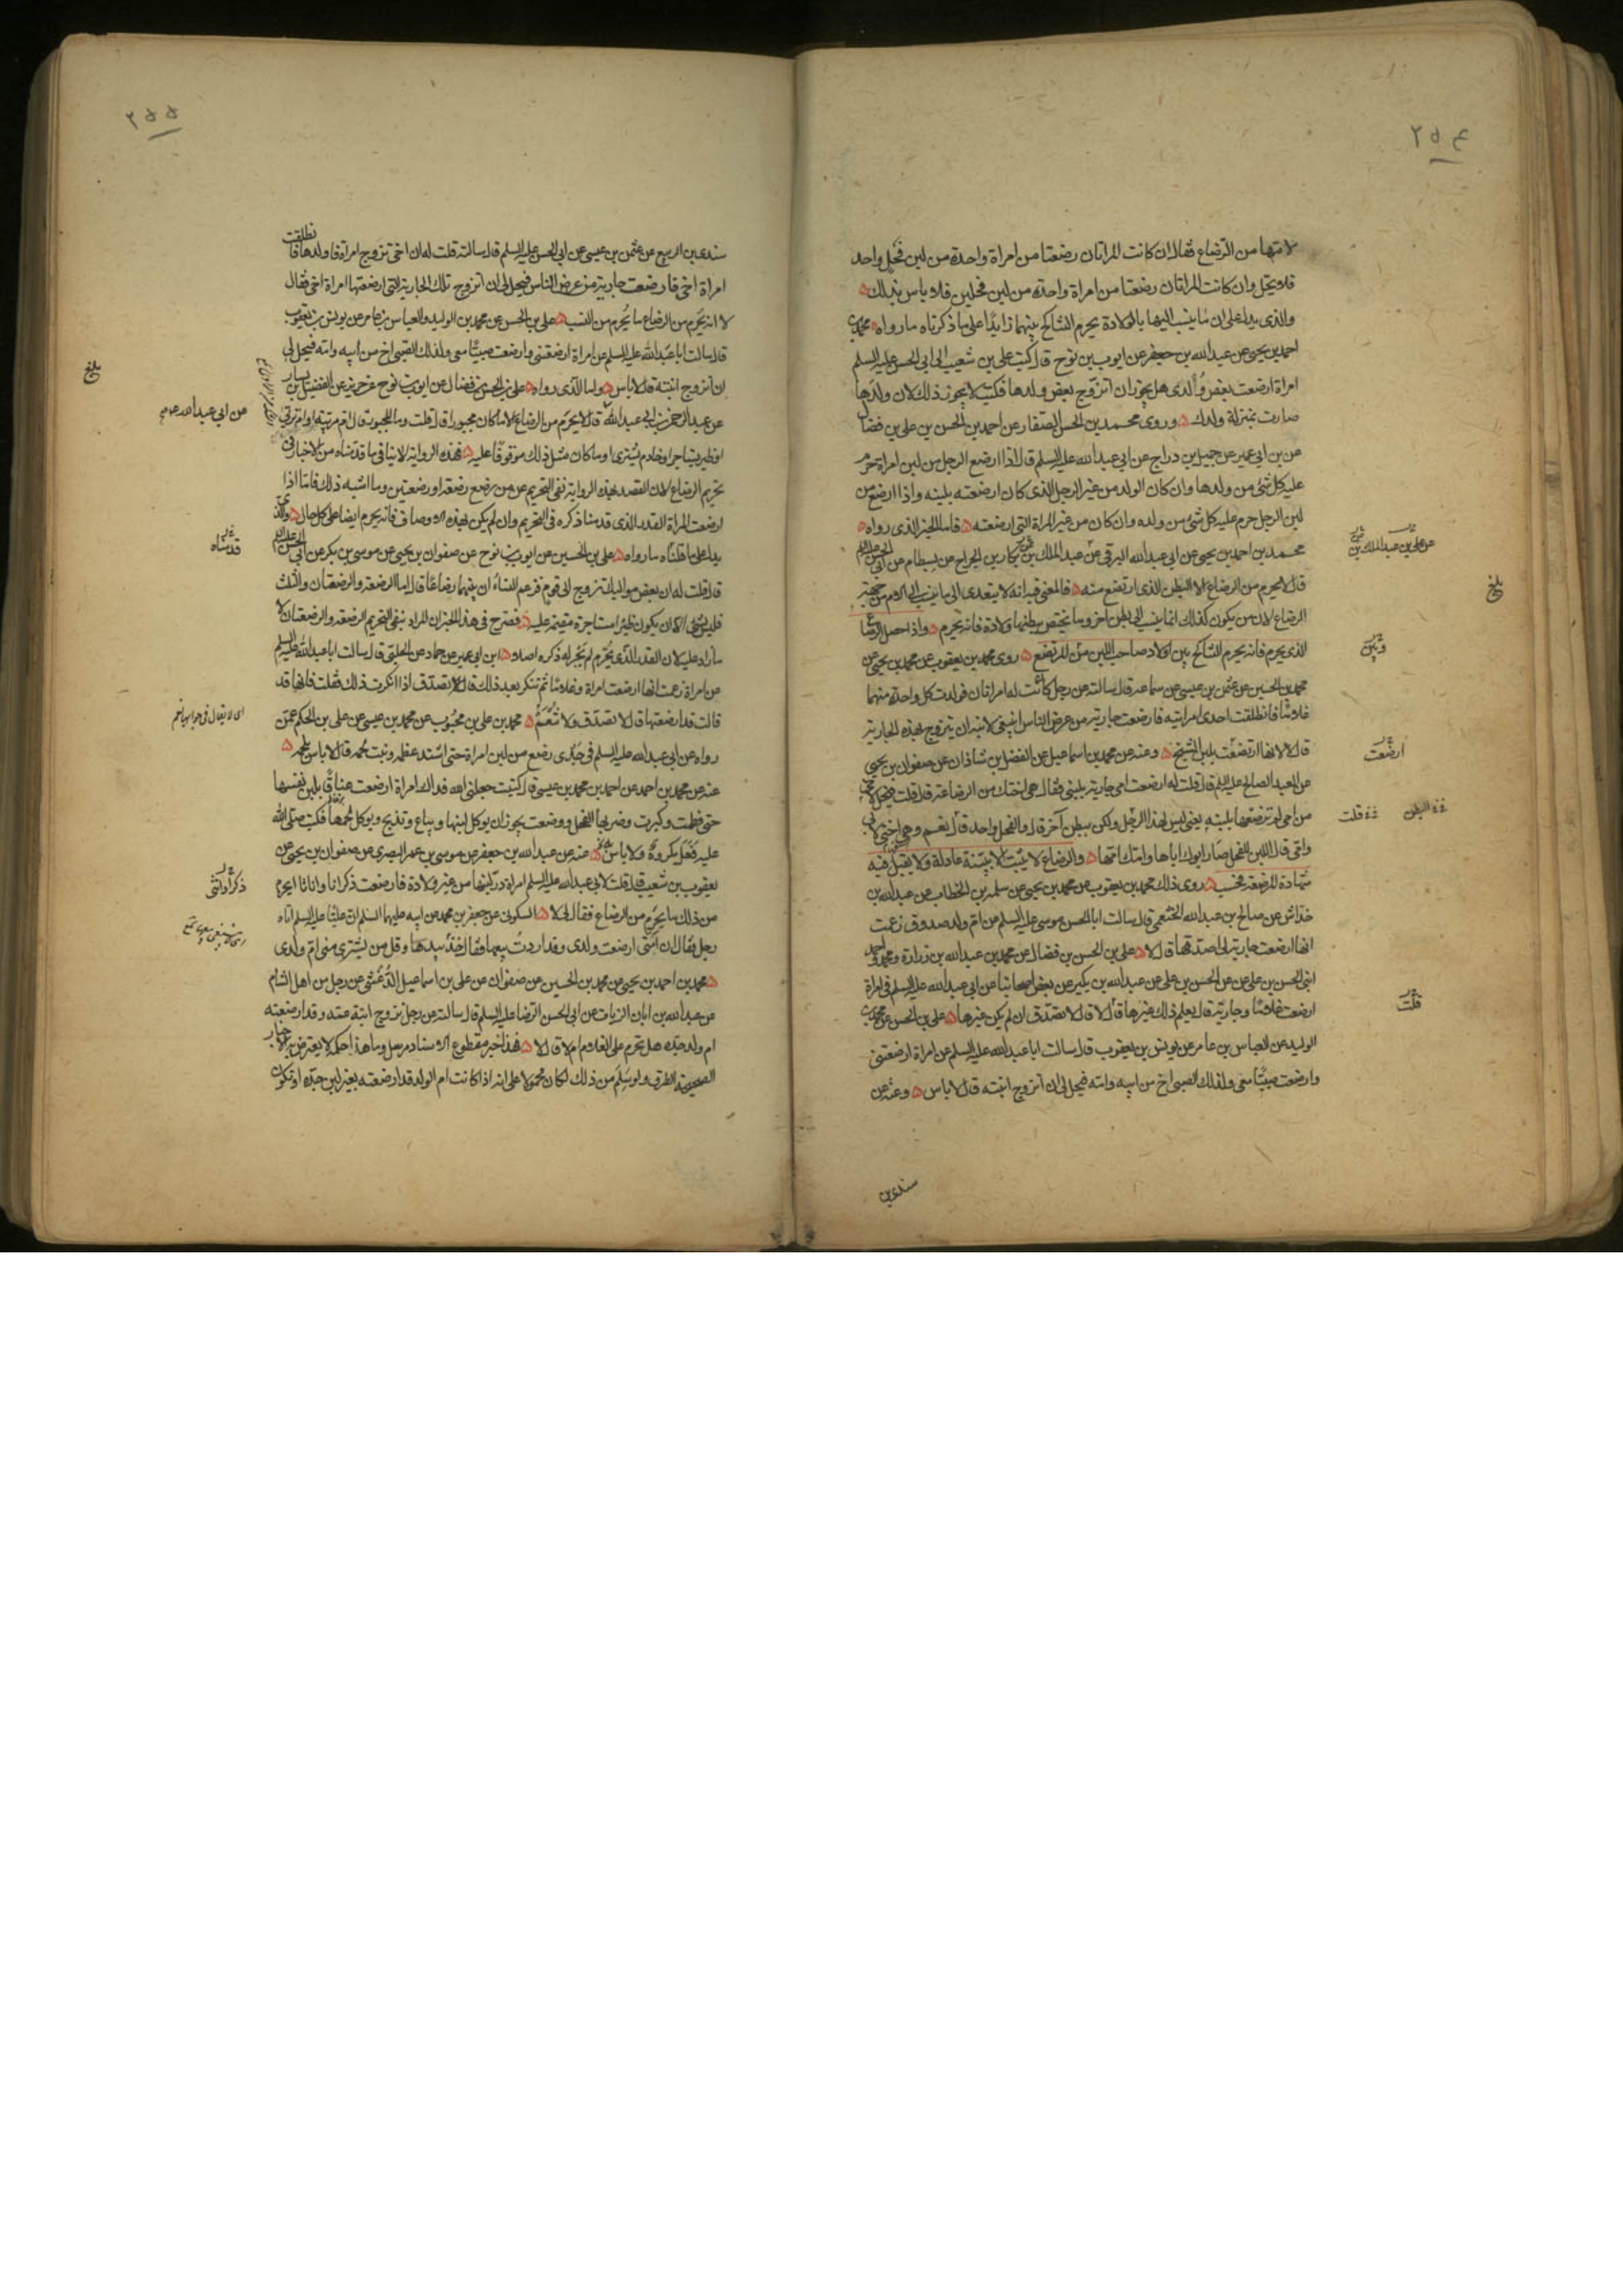 ٢٥٤
لامتها من الرضاع فقال ان كانت المراتان رضعتا من امراة واحدة من لبن فحل واحد
فلا يحل وان كانت المراتان رضعتا من امراة واحدة من لبن فحلين فلا باس بذلك ۵
والذى يدل على ان ما ينسب اليها بالولادة يحرم التناكح بينهما زايدًا على ما ذكرناه ما رواه ۵ محمد بن
احمد بن يحيى عن عبد الله بن جعفر عن ايوب بن نوح قال كتب على بن شعيب الى ابى الحسن عليه السلم
امراة ارضعت بعض ولدى هل يجوز ان اتزوج بعض ولدها فكتب لا يجوز ذلك لان ولدها
صارت بمنزلة ولدك ۵ وروى محمد بن الحسن الصفار عن احمد بن الحسن بن على بن فضال
عن بن ابى عمير عن جميل بن دراج عن ابى عبد الله عليه السلم قال اذا ارضع الرجل من لبن امراة حرم
عليه كل شئ من ولدها وان كان الولد من غير الرجل الذى كان ارضعته بلبنه واذا ارضع من
لبن الرجل حرم عليه كل شئ من ولده وان كان من غير المراة التى ارضعته ۵ فاما الخبر الذى رواه ۵
محمد بن احمد بن يحيى عن ابى عبد الله البرقى عن عبد الملك بن بكار بن الجراح عن بسطام عن ابى الحسن عليه السلم
قال لا يحرم من الرضاع الا البطن الذى ارتضع منه ۵ فالمعنى فيه انه لا يتعدى الى ما ينسب الى الام من جهة
الرضاع لان من يكون كذلك انما ينسب الى بطن اخر وما يختص ببطنها ولادة فانه يحرم ۵ واذا حصل الرضاع
الذى يحرم فانه يحرم التناكح بين اولاد صاحب اللبن من المرتضع ۵ روى محمد بن يعقوب عن محمد بن يحيى عن
محمد بن الحسين عن عثمن بن عيسى عن سماعة قال سالته عن رجل كانت له امراتان فولدت كل واحدة منهما
غلامًا فانطلقت احدى امراتيه فارضعت جارية من عرض الناس اينبغى لابنه ان يتزوج بهذه الجارية
قال لا لانها ارتضعت بلبن الشيخ ۵ وعنه عن محمد بن اسماعيل عن الفضل بن شاذان عن صفوان بن يحيى
عن العبد الصالح عليه السلم قال قلت له ارضعت امى جارية بلبنى فقال هى اختك من الرضاعة قال قلت فتحل لاخى
من امى لم ترضعها بلبنه يعنى ليس لهذا الرجل ولكن ببطن آخر قال والفحل واحد قال نعم وهى اختى لابى
وامى قال اللبن للفحل صار ابوك اباها وامك امها ۵ والرضاع لا يثبت الا ببينة عادلة ولا يقبل فيه
شهادة المرضعة فحسب ۵ روى ذلك محمد بن يعقوب عن محمد بن يحيى عن سلمة بن الخطاب عن عبد الله بن
خداش عن صالح بن عبد الله الخثعمى قال سالت ابا الحسن موسى عليه السلم عن ام ولد صدوق زعمت
انها ارضعت جارية لى اصدقها قال لا ۵ على بن الحسن بن فضال عن محمد بن عبد الله بن زرارة ومحمد واحمد
ابنى الحسن بن على عن الحسن بن على عن عبد الله بن بكير عن بعض اصحابنا عن ابى عبد الله عليه السلم فى امراة
ارضعت غلامًا وجارية قال يعلم ذلك غيرها قال لا قال لا تصدق ان لم يكن غيرها ۵ على بن الحسن عن محمد بن
الوليد عن العباس بن عامر عن يونس بن يعقوب قال سالت ابا عبد الله عليه السلم عن امراة ارضعتنى
وارضعت صبيًا معى ولذلك الصبى اخ من ابيه وامه فيحل لى ان اتزوج ابنته قال لا باس ۵ وعنه عن
سندى بن
عن على بن عبد الملك بن
بلغ
ارضعت
قلت
قلت
٢٥٥
سندى بن الربيع عن عثمن بن عيسى عن ابى الحسن عليه السلم قال سالته قلت له ان اخى تزوج امراة فاولدها فانطلقت
امراة اخى فارضعت جارية من عرض الناس فيحل لى ان اتزوج تلك الجارية التى ارضعتها امراة اخى فقال
لا انه يحرم من الرضاع ما يحرم من النسب ۵ على بن الحسن عن محمد بن الوليد والعباس بن عامر عن يونس بن يعقوب
قال سالت ابا عبد الله عليه السلم عن امراة ارضعتنى وارضعت صبيًا معى ولذلك الصبى اخ من ابيه وامه فيحل لى
ان اتزوج ابنته قال لا باس ۵ واما الذى رواه ۵ على بن الحسن بن فضال عن ايوب بن نوح عن حريز عن الفضيل بن يسار
عن عبد الرحمن بن ابى عبد الله قال لا يحرم من الرضاع الا ما كان مجبورا قال قلت وما المجبور قال ام مربية او ام تربى
او ظير يستاجر او خادم يشترى او ما كان مثل ذلك موقوفًا عليه ۵ فهذه الرواية لا ينافى ما قدمناه من الاخبار فى
تحريم الرضاع لان القصد بهذه الرواية نفى التحريم عمن رضع رضعة او رضعتين وما اشبه ذلك فاما اذا
ارضعت المراة القدر الذى قدمنا ذكره فى التحريم وان لم يكن بهذه الاوصاف فانه يحرم ايضا على كل حال ۵ والذى
يدل على ما قلناه ما رواه ۵ على بن الحسين عن ايوب بن نوح عن صفوان بن يحيى عن موسى بن بكر عن ابى الحسن عليه السلم
قال قلت له ان بعض مواليك تزوج الى قوم فزعم النساء ان بينهما رضاعًا قال اما الرضعة والرضعتان والثلث
فليس بشئ الا ان يكون ظيرا مستاجرة مقيمة عليه ۵ فصرح فى هذا الخبر ان المراد بنفى التحريم الرضعة والرضعتان لا
ما زاد عليه لان القدر الذى يحرم لم يجر له ذكره اصلا ۵ ابن ابى عمير عن حماد عن الحلبى قال سالت ابا عبد الله عليه السلم
عن امراة زعمت انها ارضعت امراة وغلامًا ثم تنكر بعد ذلك قال لا تصدق اذا انكرت ذلك فقلت فانها قد
قالت قد ارضعتها قال لا تصدق ولا تنعم ۵ محمد بن على بن محبوب عن محمد بن عيسى عن على بن الحكم عمن
رواه عن ابى عبد الله عليه السلم فى جدى رضع من لبن امراة حتى اشتد عظمه ونبت لحمه قال لا باس بلحمه ۵
عنه عن محمد بن احمد عن احمد بن محمد بن عيسى قال كتبت جعلنى الله فداك امراة ارضعت عناقًا بلبن نفسها
حتى فطمت وكبرت وضربها الفحل ووضعت يجوز ان يوكل لبنها ويباع وتذبح ويوكل لحمها فكتب صلى الله
عليه فعل مكروه ولا باس به ۵ عنه عن عبد الله بن جعفر عن موسى بن عمر البصرى عن صفوان بن يحيى عن
يعقوب بن شعيب قال قلت لابى عبد الله عليه السلم امراة در لبنها من غير ولادة فارضعت ذكرانا واناثا ايحرم
من ذلك ما يحرم من الرضاع فقال لى لا ۵ السكونى عن جعفر بن محمد عن ابيه عليهما السلم ان عليًا عليه السلم اتاه
رجل فقال ان امتى ارضعت ولدى وقد اردت بيعها فقال خذ بيدها وقل من يشترى منى ام ولدى
۵ محمد بن احمد بن يحيى عن محمد بن الحسين عن صفوان عن على بن اسماعيل الدغشى عن رجل من اهل الشام
عن عبد الله بن ابان الزيات عن ابى الحسن الرضا عليه السلم قال سالته عن رجل تزوج ابنة عمه وقد ارضعته
ام ولد جده هل تحرم على الغلام ام لا قال لا ۵ فهذا خبر مقطوع الاسناد مرسل وما هذا حكمه لا يعترض به الاخبار
الصحيحة الطرق ولو سلم من ذلك لكان محمولا على انه اذا كانت ام الولد قد ارضعته بغير لبن جده او تكون
بلغ
عن ابى عبد الله
قدمناه
ذكرا وانثى